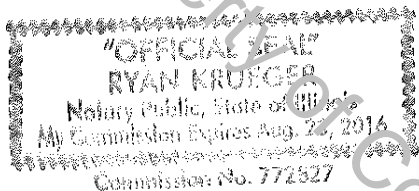 "OFFICIAL SEAL"
RYAN KRUEGER
Notary Public, State of Illinois
My Commission Expires Aug. 22, 2016
Commission No. 772827
erty of C